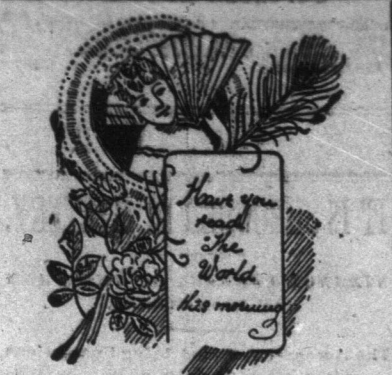 Have you
read
The
World
this morning